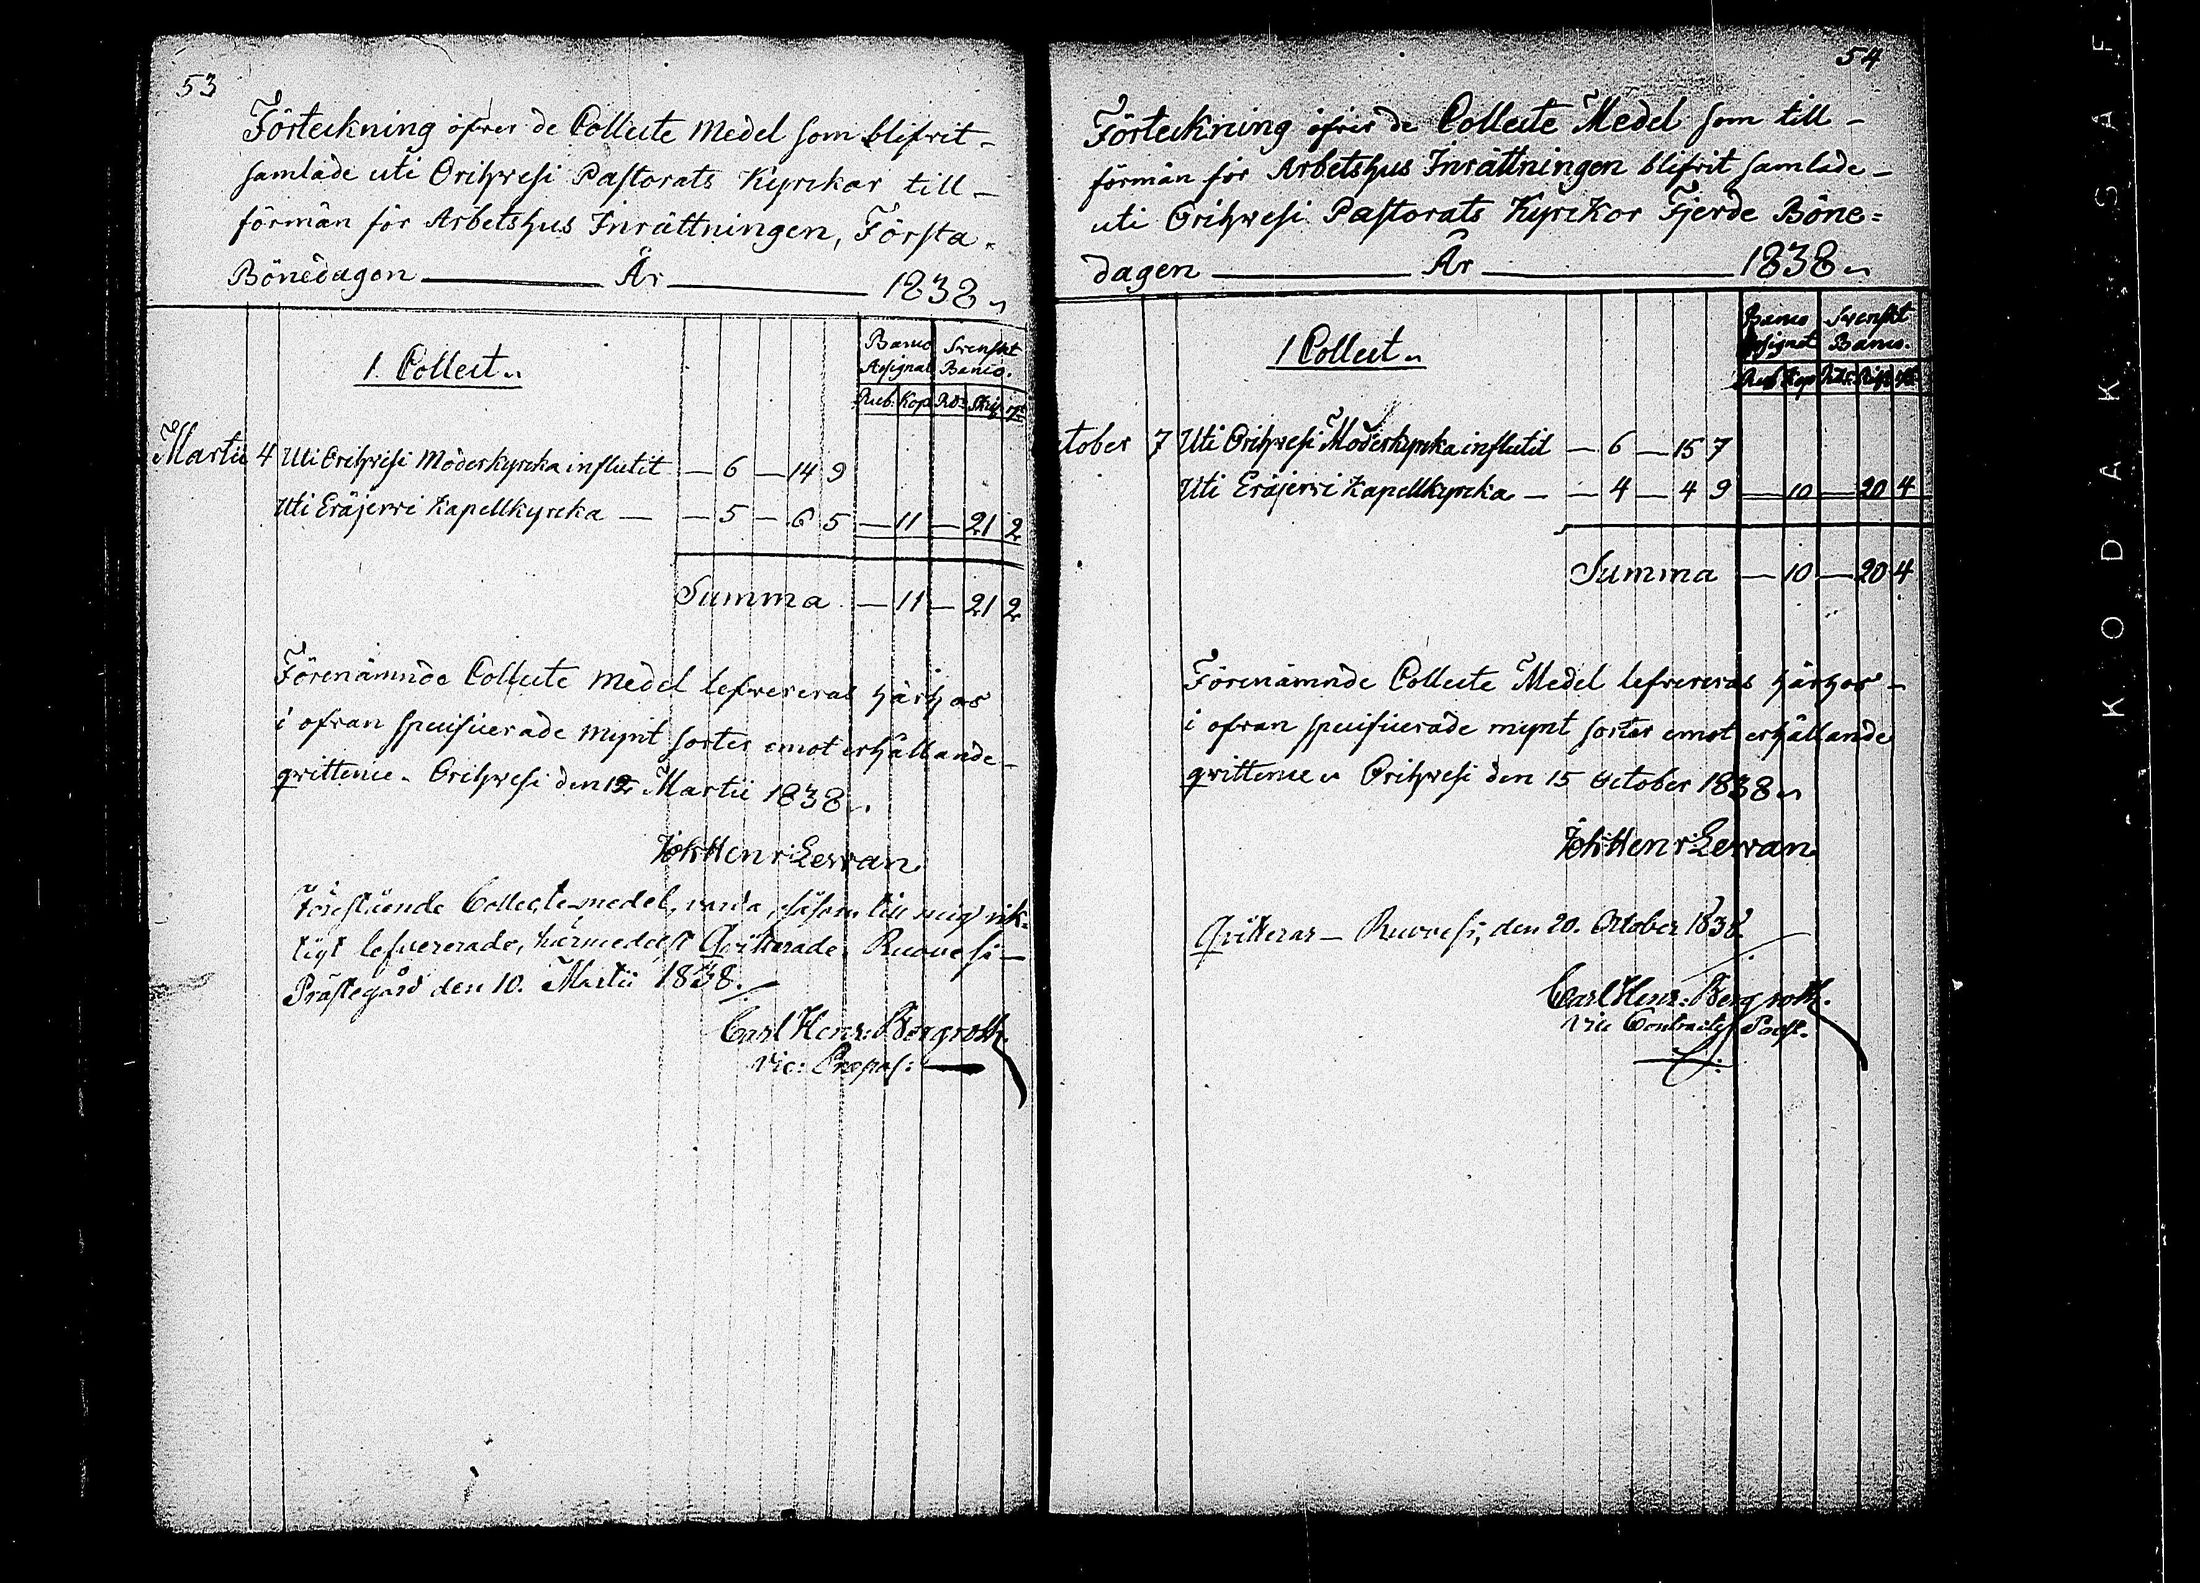 53
Förteckning öfver de Collecte Medel som blifvit
samlade uti Orihvesi Pastorats Kyrckor till
förmån för Arbetshus Inrättningen, Första
Bönedagen År 1838
1 Collect
Banco Assignat Svenskt Banco.
Rub. Kop. Rd. Skill. rst
Martii 4 Uti Orihvesi Moderkyrcka influtit — 6 — 14 9
Uti Eräjervi Kapellkyrcka — — 5 — 6 5 — 11 — 21 2
Summa — 11 — 21 2
Förenämnde Collecte medel lefvereras härhos
i ofvan specificerade mynt sorter emot erhållande
qvittence. Orihvesi den 12 Martii 1838
Joh: Henr: Levan
Förestående Collecte-medel, varda, såsom till mig rik-
tigt lefvererade, härmedelst Qvitterade. Ruovesi
Prästegård den 10. Martii 1838.
Carl Henr: Bergroth.
Vic: Præpos:
54
Förteckning öfver de Collecte Medel som till
förmån för Arbetshus Inrättningen blifvit samlade
uti Orihvesi Pastorats Kyrckor Fjerde Böne=
dagen År 1838
1 Collect
Banco Assignat Svenskt Banco.
Rub Kop Rd: Skill rst
ctober 7 Uti Orihvesi Moderkyrcka influtit — 6 — 15 7
Uti Eräjervi Kapellkyrcka — — 4 — 4 9 — 10 — 20 4
Summa — 10 — 20 4
Förenämnde Collecte Medel lefvereras härhos
i ofvan specificerade mynt sorter emot erhållande
qvittence Orihvesi den 15 October 1838
Joh: Henr: Levan
Qvitteras — Ruovesi, den 20. October 1838
Carl Henr: Bergroth.
Vice Contracts Prost.
KODAK SAF